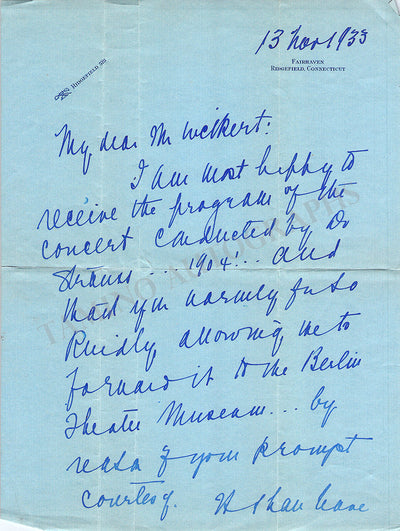 13 Nov 1933
RIDGEFIELD 520
FAIRHAVEN
RIDGEFIELD, CONNECTICUT
My dear Mr Weikert:
I am most happy to
receive the program of the
concert conducted by Dr
Strauss... 1904!... and
thank you warmly for so
kindly allowing me to
forward it to the Berlin
Theater Museum... by
reason of your prompt
courtesy. It shall have
TAMINO AUTOGRAPHS